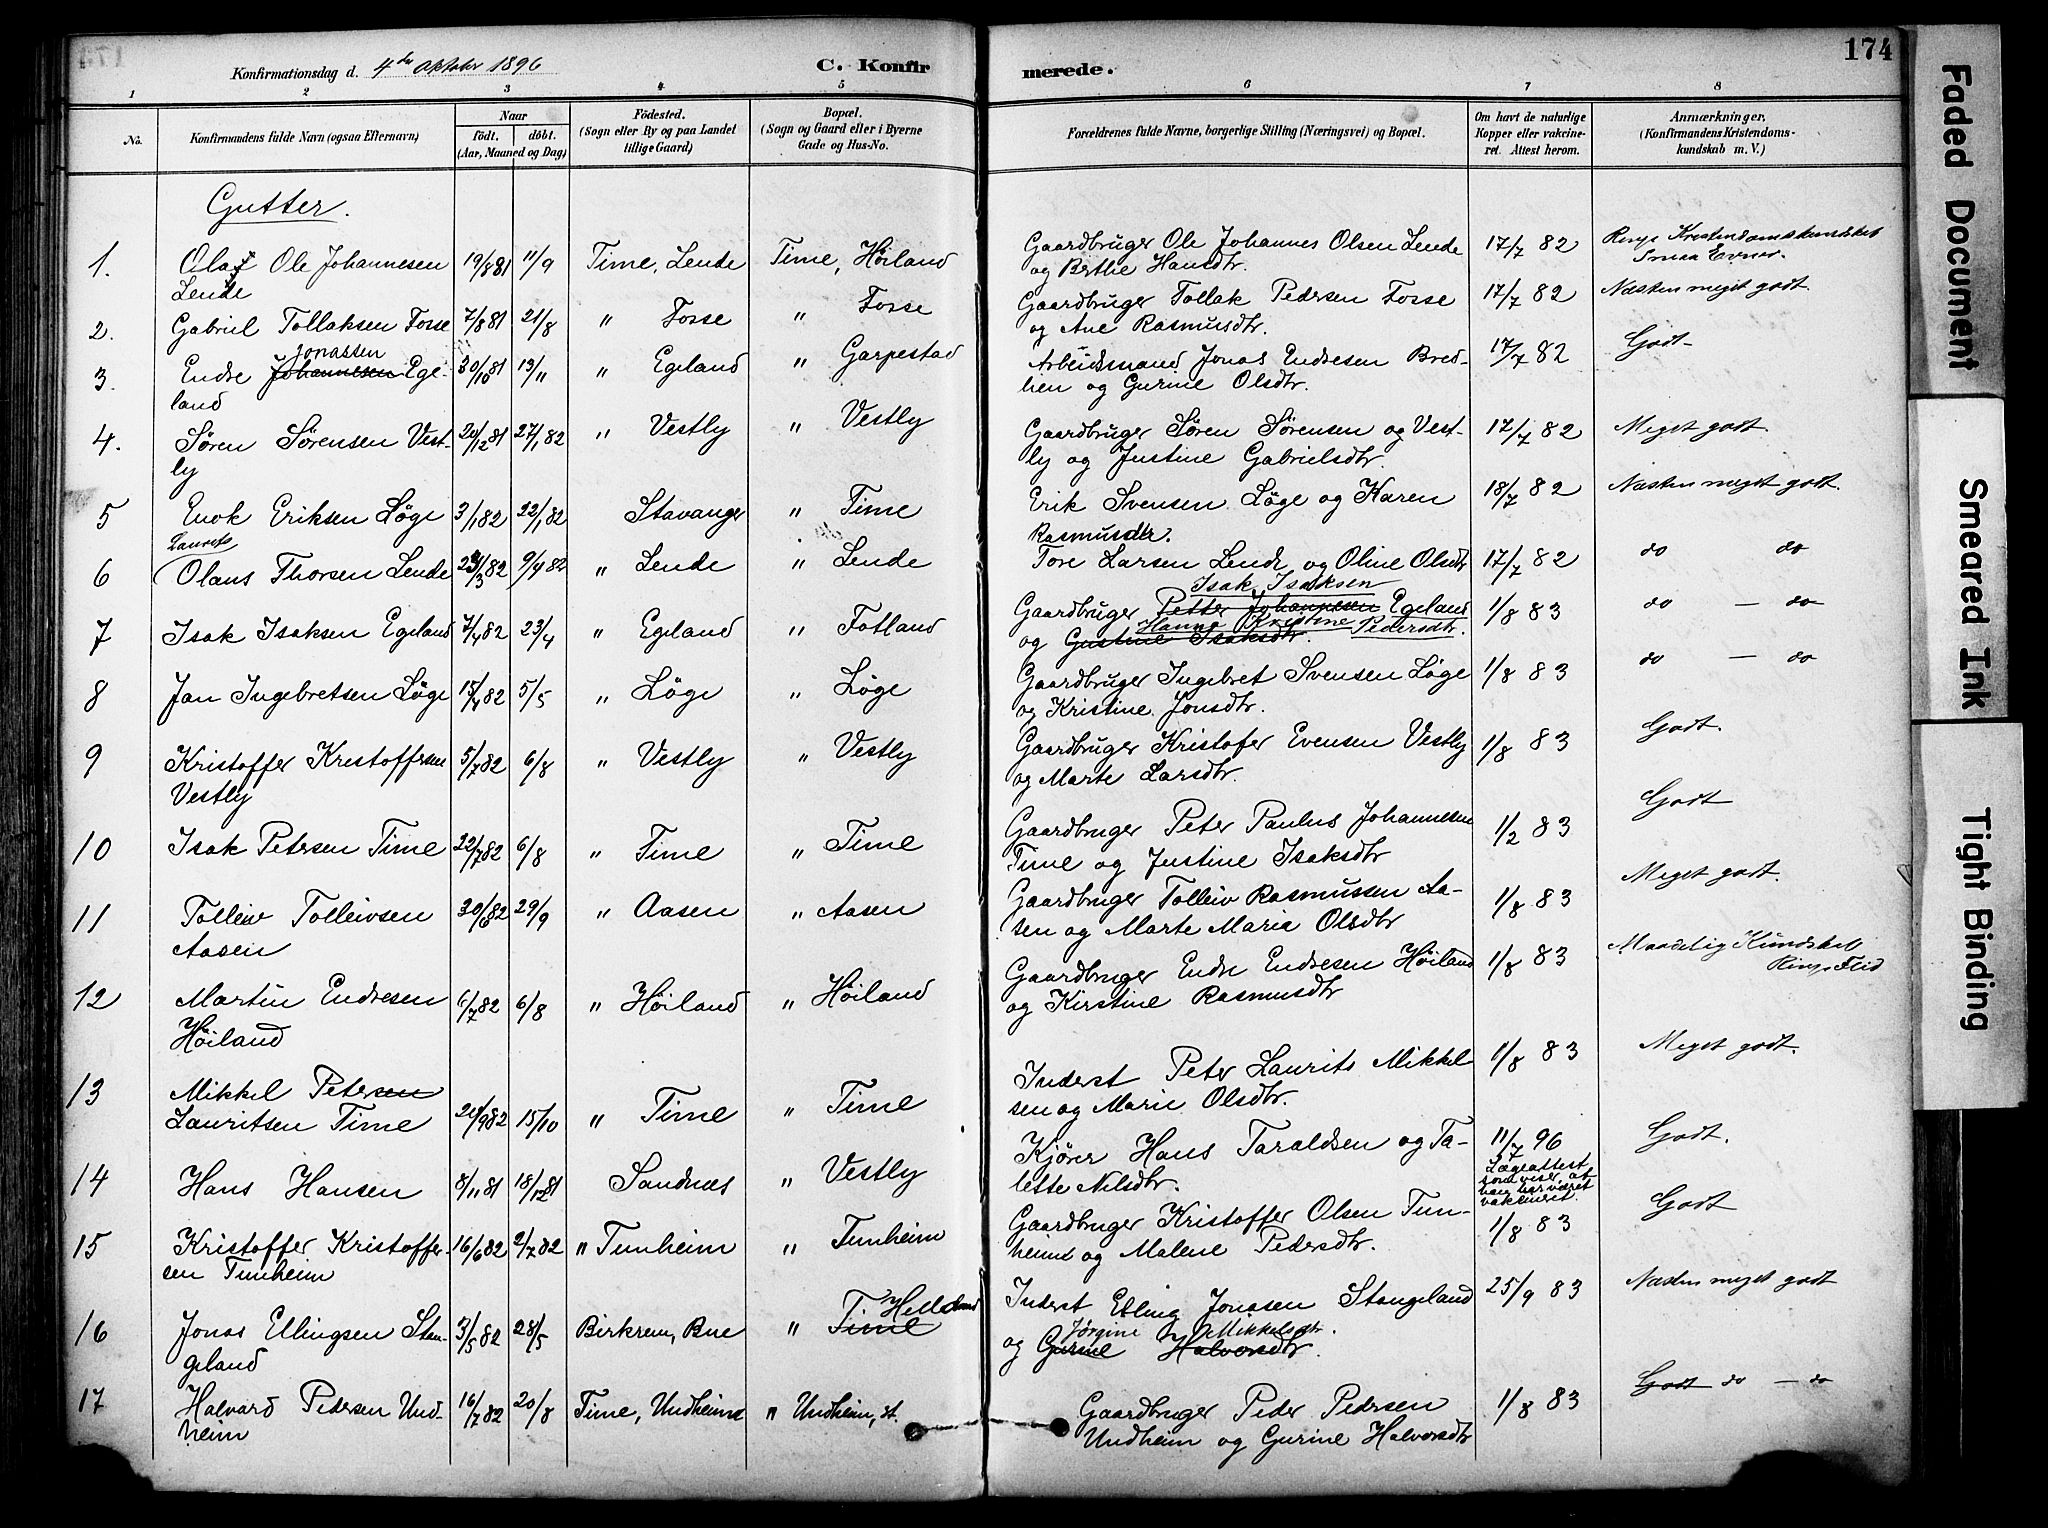 174
Konfirmationsdag d. 4de Oktober 1896 C. Konfirmerede.
1 2 3 4 5 6 7 8
No. Konfirmandens fulde Navn (ogsaa Efternavn) Naar födt. döbt. (Aar, Maaned og Dag) Födested. (Sogn eller By og paa Landet tillige Gaard) Bopæl. (Sogn og Gaard eller i Byerne Gade og Hus-No. Forældrenes fulde Navne, borgerlige Stilling (Næringsvei) og Bopæl. Om havt de naturlige Kopper eller vaccineret. Attest herom. Anmærkninger. (Konfirmandens Kristendomskundskab m. V.)
Gutter.
1. Olaf Ole Johannesen 19/8 81 11/9 Time, Lende Time, Höiland Gaardbruger Ole Johannes Olsen Lende 17/7 82 Ringe Kristendomskundskab
Lende og Berthe Hansdtr. Smaa Evner.
2. Gabriel Tollaksen Fosse 7/8 81 21/8 " Fosse " Fosse Gaardbruger Tollak Pedersen Fosse 17/7 82 Næsten meget godt
og Ane Rasmusdtr.
Jonassen
3. Endre Johannesen Ege- 30/10 81 13/11 " Egeland " Garpestad Arbeidsmand Jonas Endresen Bred- 17/7 82 Godt
land hen og Gurine Olsdtr.
4. Søren Sørensen Vest- 20/12 81 27/1 82 " Vestly " Vestly Gaardbruger Søren Sørensen og Vest- 17/7 82 Meget godt.
ly ly og Justine Gabrielsdtr.
5 Enok Eriksen Löge 3/1 82 22/1 82 Stavanger " Time Erik Svensen Löge og Karen 18/7 82 Næsten meget godt.
Laurits Rasmusdtr.
6 Olaus Thorsen Lende 24/3 82 9/4 82 " Lende " Lende Tore Larsen Lende og Oline Olsdtr 17/7 82 do do
Isak Isaksen
7 Isak Isaksen Egeland 7/4 82 23/4 " Egeland " Fotland Gaardbruger Petter Johannesen Egeland 1/8 83 do — do
Hanna Kristine Pedersdtr.
og Gustine Isaksdtr.
8 Jan Ingebretsen Löge 17/4 82 5/5 " Löge " Löge Gaardbruger Ingebret Svensen Löge 1/8 83 do — do
og Kristine Jonsdtr.
9 Kristoffer Kristoffersen 5/7 82 6/8 " Vestly " Vestly Gaardbruger Kristofer Evensen Vestly 1/8 83 Godt.
Vestly og Marte Larsdtr.
10 Isak Petersen Time 22/7 82 6/8 " Time " Time Gaardbruger Peter Paulus Johannesen 1/2 83 Godt
Time og Justine Isaksdtr
11 Tolleiv Tolleivsen 30/8 82 29/9 " Aasen " Aasen Gaardbruger Tolleiv Rasmussen Aa- 1/8 83 Meget godt.
Aasen sen og Marte Maria Olsdtr
12 Martin Endresen 6/7 82 6/8 " Höiland " Höiland Gaardbruger Endre Endresen Höiland 1/8 83 Maadelig Kundskab
Höiland og Kirstine Rasmusdtr Ringe Flid
13 Mikkel Petersen Inderst Peter Laurits Mikkel- 1/8 83 Meget godt.
Lauritsen Time 24/9 82 15/10 " Time " Time sen og Marie Olsdtr.
14 Hans Hansen 8/11 81 18/12 81 Sandnæs " Vestly Kjörer Hans Taraldsen og Ta- 11/7 96 Godt.
lette Nilsdtr. Lægeattest som viser, at han har været vakcineret.
15 Kristoffer Kristoffer- 16/6 82 2/7 82 " Tunheim " Tunheim Gaardbruger Kristoffer Olsen Tun- 1/8 83 Godt
sen Tunheim heim og Malene Pedersdtr.
Helland
16 Jonas Ellingsen Stan- 3/5 82 28/5 Birkrem, Bue " Time Inderst Elling Jonasen Stangeland 25/9 83 Næsten meget godt
Jörgine Mikkelsdtr.
geland og Gurine Halvorsdtr.
17 Halvard Pedersen Und- 16/7 82 20/8 Time, Undheim " Undheim, st. Gaardbruger Peder Pedersen 1/8 83 Godt do — do
heim Undheim og Gurine Halvorsdtr
Faded Document
Smeared Ink
Tight Binding